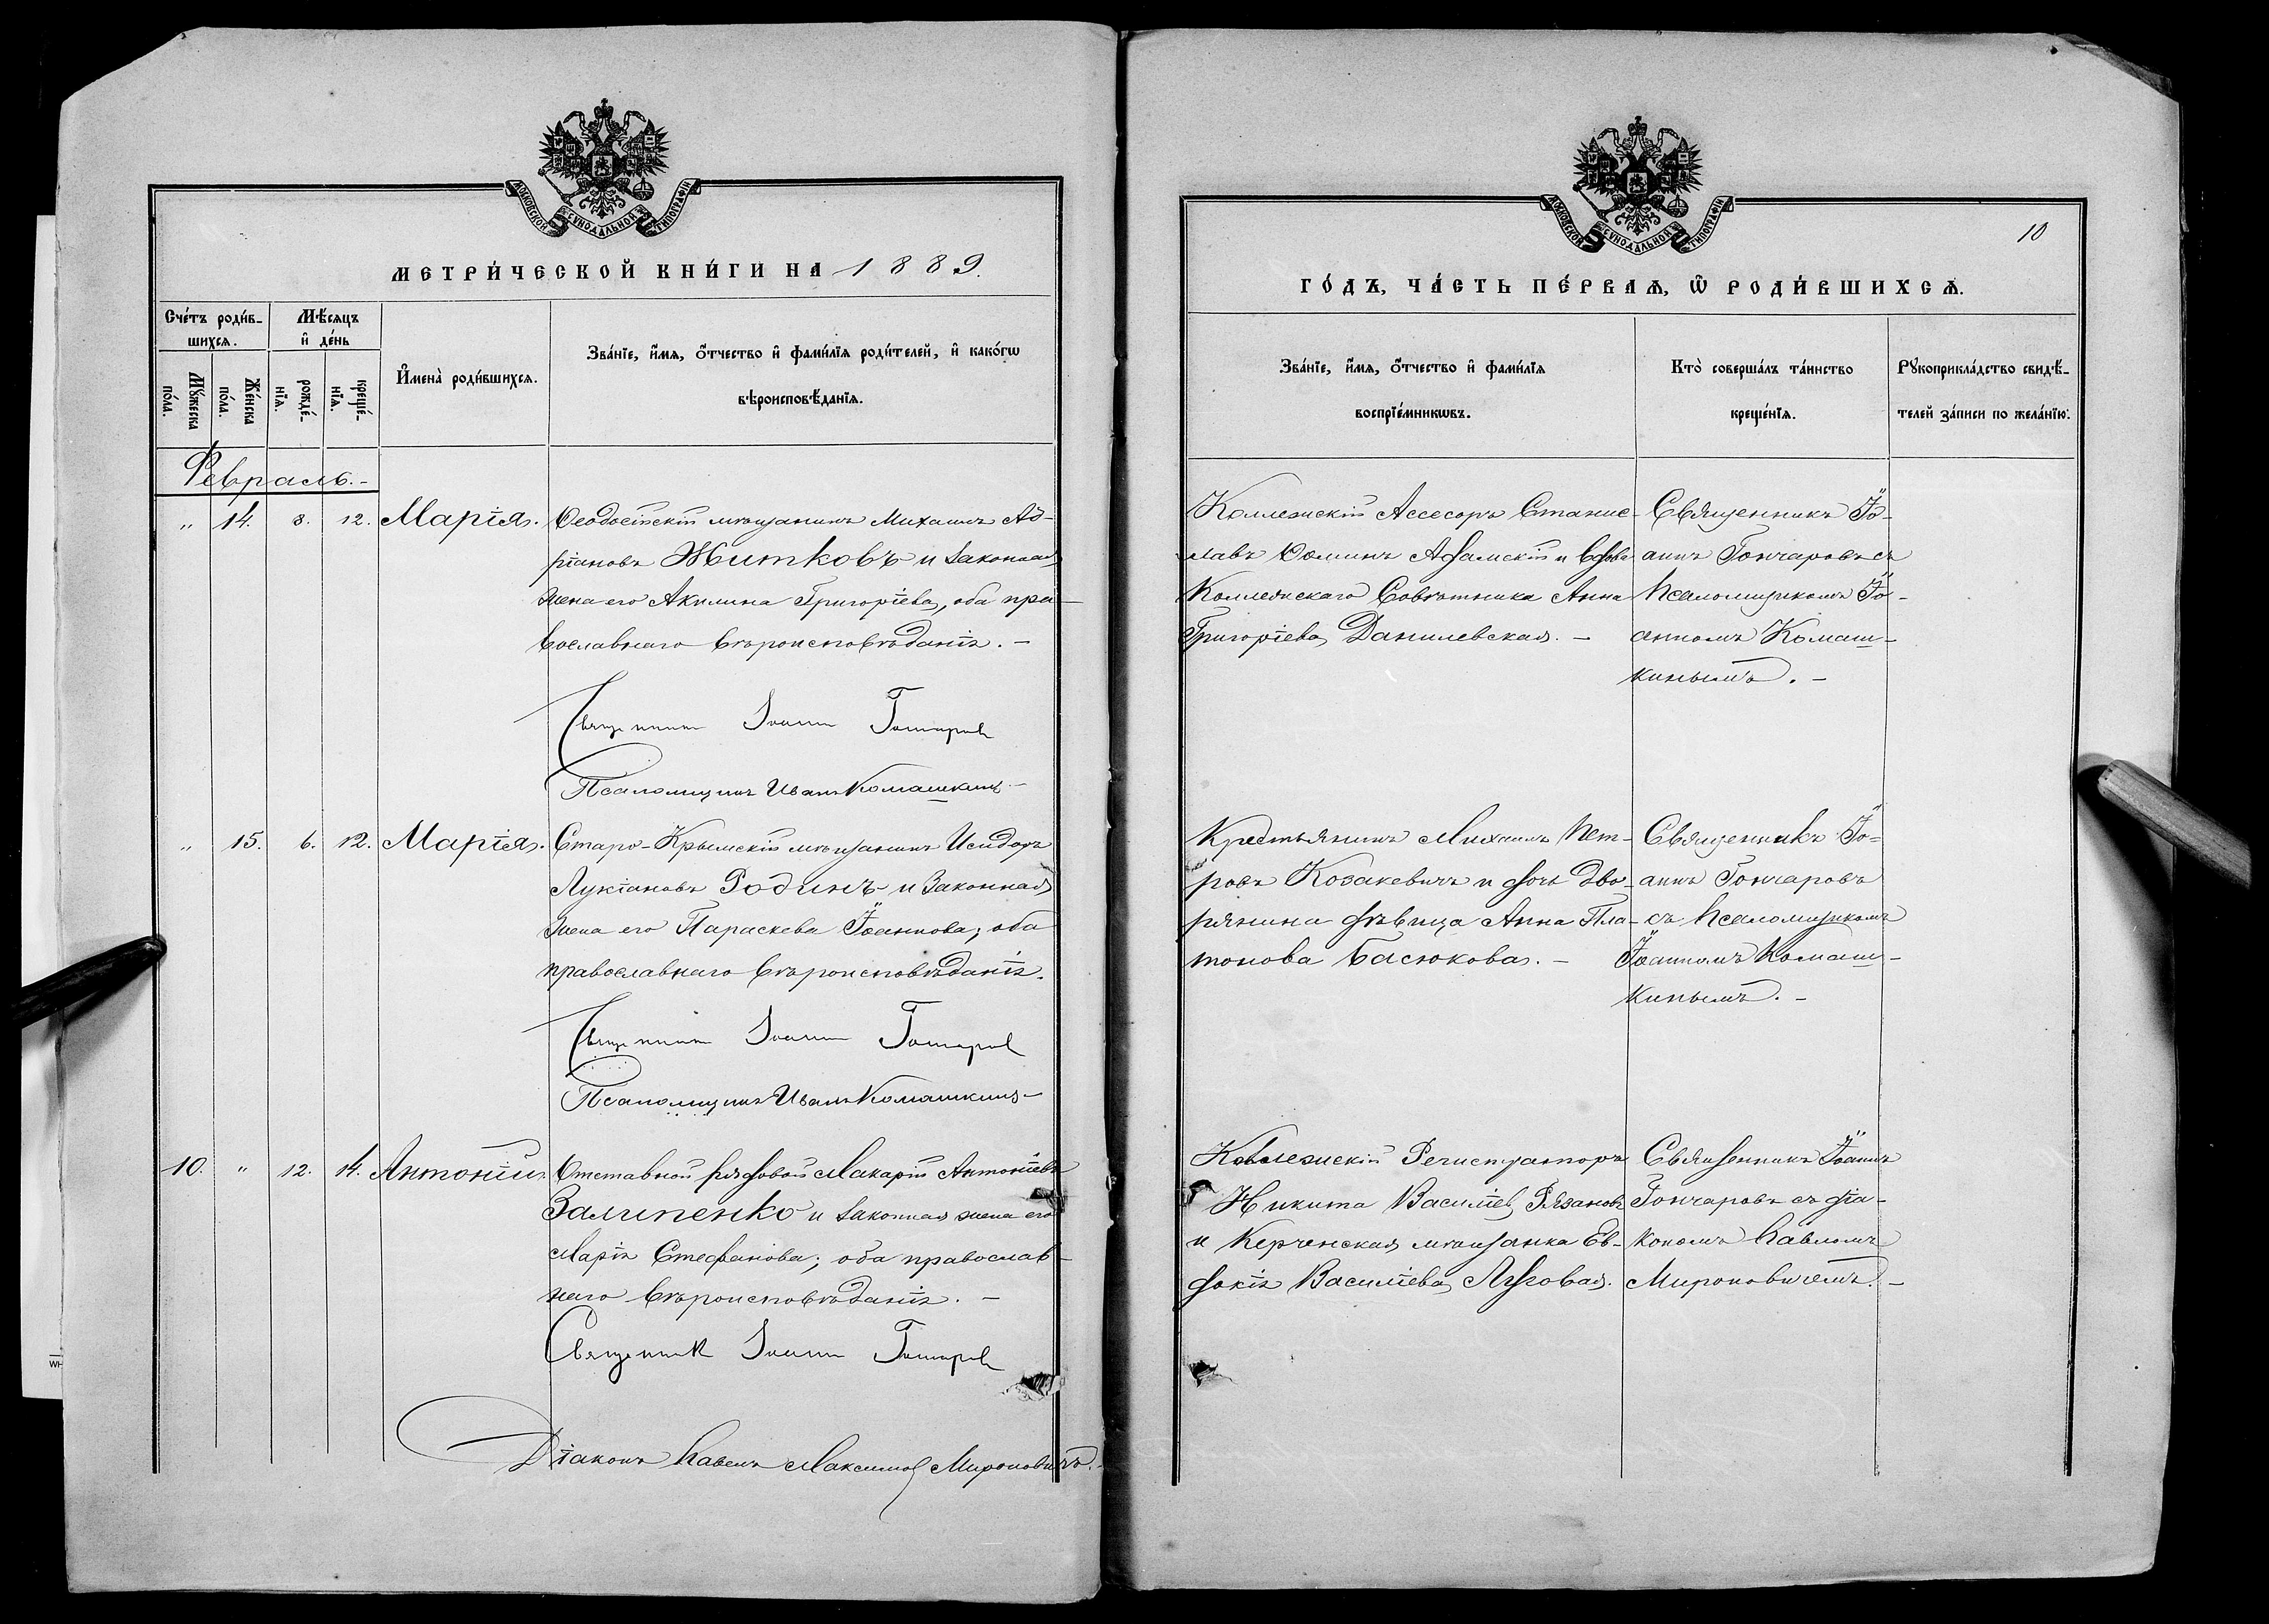 МОСКОВСКОЙ СѴНОДАЛЬНОЙ ТИПОГРАФІИ
МЕТРИ́ЧЕСКОЙ КНИ́ГИ НА 1889.
Сче́тъ роди́в-
шихсѧ.
Мѣ́сѧцъ
и҆ де́нь
Мꙋ́жеска
по́ла.
Же́нска
по́ла.
рожде́-
нїѧ.
креще́-
нїѧ.
И҆мена̀ роди́вшихсѧ.
Зва́нїе, и҆́мѧ, ѻ҆́тчество и҆ фами́лїѧ роди́телей, и҆ како́гѡ
вѣроисповѣ́данїѧ.
Февраль.-
„ 14. 8. 12. Марія. Ѳеодосійскій мѣщанинъ Михаилъ Ад-
ріановъ Житковъ и законная
жена его Акилина Григоріева, оба пра-
вославнаго вѣроисповѣданія. -
Священникъ Іоаннъ Гончаровъ
Псаломщикъ Иванъ Комашкинъ -
„ 15. 6. 12. Марія. Старо-Крымскій мѣщанинъ Исидоръ
Лукіановъ Родинъ и законная
жена его Параскева Іоаннова; оба
православнаго вѣроисповѣданія.
Священникъ Іоаннъ Гончаровъ
Псаломщикъ Иванъ Комашкинъ -
10. „ 12. 14. Антоній. Отставной рядовой Макарій Антоніевъ
Залипенко и законная жена его
Марія Стефанова; оба православ-
наго вѣроисповѣданія. -
Священникъ Іоаннъ Гончаровъ
Діаконъ Павелъ Максимов Мироновичъ.
МОСКОВСКОЙ СѴНОДАЛЬНОЙ ТИПОГРАФІИ
10
ГО́ДЪ, ЧА́СТЬ ПЕ́РВАѦ, Ѡ҆ РОДИ́ВШИХСѦ.
Зва́нїе, и҆́мѧ, ѻ҆́тчество и҆ фами́лїѧ
воспрїе́мникѡвъ.
Кто̀ соверша́лъ та́инство
креще́нїѧ.
Рꙋкоприкла́дство свидѣ́-
телей за́писи по жела́нїю.
Коллежскій Ассесоръ Станис-
лавъ Ѳоминъ Адамскій и вдова
Коллежскаго Совѣтника Анна
Григоріева Данилевская. -
Священникъ Іо-
аннъ Гончаровъ съ
псаломщикомъ Іо-
анномъ Комаш-
кинымъ. -
Крестьянинъ Михаилъ Пет-
ровъ Козакевичъ и дочь дво-
рянина дѣвица Анна Пла-
тонова Басюкова. -
Священникъ Іо-
аннъ Гончаровъ
съ псаломщикомъ
Іоанномъ Комаш-
кинымъ. -
Коллежскій Регистраторъ
Никита Василіев Рязановъ
и Керченская мѣщанка Ев-
докія Василіева Луговая.
Священникъ Іоаннъ
Гончаровъ съ діа-
кономъ Павломъ
Мироновичемъ. -